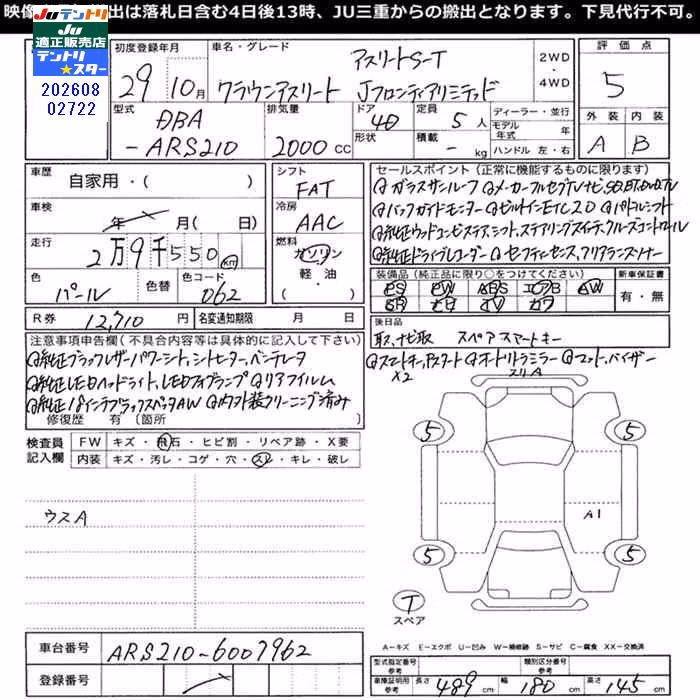 映像 出は落札日含む4日後13時、JU三重からの搬出となります。下見代行不可。
JUテントリ
JU 適正販売店
テントリ★スター
202608
02722
初度登録年月 29 10月
車名・グレード アスリートS-T
クラウンアスリート Jフロンティアリミテッド
2WD・4WD
評価点 5
外装 内装
A B
型式 DBA
-ARS210
排気量 2000 CC
ドア 4D
形状
定員 5人
積載 - kg
ディーラー・並行
モデル年式 年
ハンドル 左・右
車歴 自家用・( )
車検 年 月(日)
走行 2万9千550 km
色 パール 色替 色コード 062
シフト FAT
冷房 AAC
燃料 ガソリン
軽油・
R券 12,710円 名変通知期限 月 日
セールスポイント(正常に機能するものに限ります)
@ガラスサンルーフ @メーカーフルセグTVナビ,SD,BT,DVD,TV
@バックガイドモニター @ビルトインETC2.0 @パドルシフト
@純正ウッドコンビステア,シフト,ステアリングスイッチ,クルーズコントロール
@純正ドライブレコーダー @セーフティセンス,クリアランスソナー
装備品(純正品に限り○をつけてください) 新車保証書
PS PW ABS エアB AW 有・無
SR カワ TV ナビ
後日品
取ス,ナビ取 スペアスマートキー
注意事項申告欄(不具合内容等は具体的に記入して下さい)
@純正ブラックレザーパワーシート,シートヒーター,ベンチレータ
@純正LEDヘッドライト,LEDフォグランプ @リアフィルム
@純正18インチブラックスパッタAW @内外装クリーニング済み
修復歴 有 〔箇所
@スマートキー,Pスタート @オートリトラミラー @マット,バイザー
X2 スリA
検査員記入欄
FW キズ・飛石・ヒビ割・リペア跡・X要
内装 キズ・汚レ・コゲ・穴・スレ・キレ・破レ
ウスA
5 5
A1
5 5
T
スペア
車台番号 ARS210-6007962
登録番号
A−キズ E−エクボ U−凹み W−補修跡 S−サビ C−腐食 XX−交換済
型式指定番号 参考 類別区分番号 参考
車庫証明用 参考 長さ 489 cm 幅 180 cm 高さ 145 cm